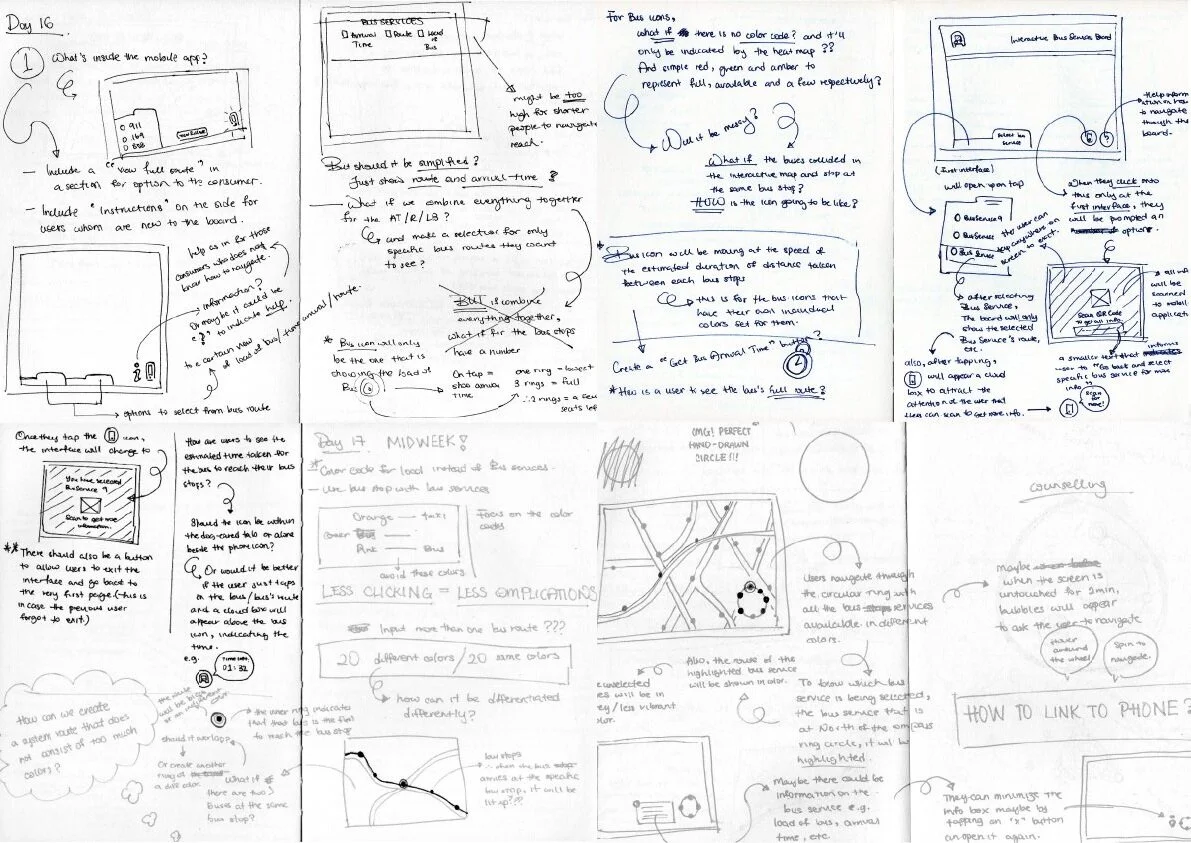 Day 16
1
What's inside the mobile app?
0 911
0 169
0 858
— Include a "view full route" in
a section for option to the consumer.
— Include "Instructions" on the side for
users whom are new to the board.
help as in for those
consumers who does not
know how to navigate.
information?
Or maybe it could be
"?" to indicate help.
to a certain view
of load of bus/time arrival/route.
options to select from bus route
BUS SERVICES
Arrival
Time
Route
Load
of
Bus
might be too
high for shorter
people to navigate
reach.
But should it be simplified?
Just show route and arrival-time?
What if we combine everything together
for the AT/R/LB?
and make a selection for only
specific bus routes they want
to see?
BUT is combine
everything together,
what if for the bus stops
have a number
* Bus icon will only
be the one that is
showing the load of
Bus
On tap =
show arrival
time
one ring = lowest
3 rings = full
∴ 2 rings = a few
seats left
For Bus icons,
what if there is no color code? and it'll
only be indicated by the heat map??
And simple red, green and amber to
represent full, available and a few respectively?
Will it be messy?
What if the buses collided in
the interactive map and stop at
the same bus stop?
HOW is the icon going to be like?
* Bus icon will be moving at the speed of
the estimated duration of distance taken
between each bus stops
this is for the bus icons that
have their own individual
colors set for them.
Create a "Get Bus Arrival Time" button?
* How is a user to see the bus's full route?
Interactive Bus Service Board
Select bus
service
?
(First interface)
will open upon tap
0 Bus Service 9
0 Bus Service
0 Bus Service
the user can
tap anywhere on
screen to exit.
after selecting
Bus Service,
The board will only
show the selected
Bus Service's route,
etc.
also, after tapping,
will appear a cloud
box to attract the
attention of the user that
they can scan to get more info.
When they click onto
this only at the
first interface, they
will be prompted an
option.
Scan QR Code
to get all info
all info
will be
scanned
to mobile
applicat
a smaller text that informs
user to "Go back and select
specific bus service for more
info"
Scan
for
more!
Once they tap the icon,
the interface will change to
You have selected
Bus Service 9
Scan to get more
information.
** There should also be a button
to allow users to exit the
interface and go back to
the very first page (this is
in case the previous user
forgot to exit)
How are users to see the
estimated time taken for
the bus to reach their bus
stops?
Should the icon be within
the dog-eared tab or alone
beside the phone icon?
Or would it be better
if the user just taps
on the bus/bus's route
and a cloud box will
appear above the bus
icon, indicating the
time.
e.g.
01:32
How can we create
a system route that does
not consist of too much
colors?
should it overlap?
Or create another
ring of
a diff color.
the inner ring indicates
that that bus is the first
to reach the bus stop
What if
there are two
buses at the same
bus stop?
Day 17 MIDWEEK!
* Color code for load instead of Bus services.
— Use bus stop with bus services
Orange
Pink — Bus
avoid these colors
Focus on the color
codes
LESS CLICKING = LESS COMPLICATIONS
Input more than one bus route???
20 different colors/20 same colors
how can it be differentiated
differently?
bus stops
∴ when the bus
arrives at the specific
bus stop, it will be
lit up???
OMG! PERFECT
HAND-DRAWN
CIRCLE!!!
Users navigate through
the circular ring with
all the bus services
available in different
colors.
Also, the route of the
highlighted bus service
will be shown in color.
unselected
es will be in
ey/less vibrant
olor.
To know which bus
service is being selected,
the bus service that is
at North of the compass
ring circle, it will be
highlighted.
Maybe there could be
information on the
bus service e.g.
load of bus, arrival
time, etc.
counselling
Maybe
when the screen is
untouched for 2min,
bubbles will appear
to ask the user to navigate
Hover
around
the wheel
Spin to
navigate.
HOW TO LINK TO PHONE?
They can minimize the
info box maybe by
tapping on "x" button
can open it again.